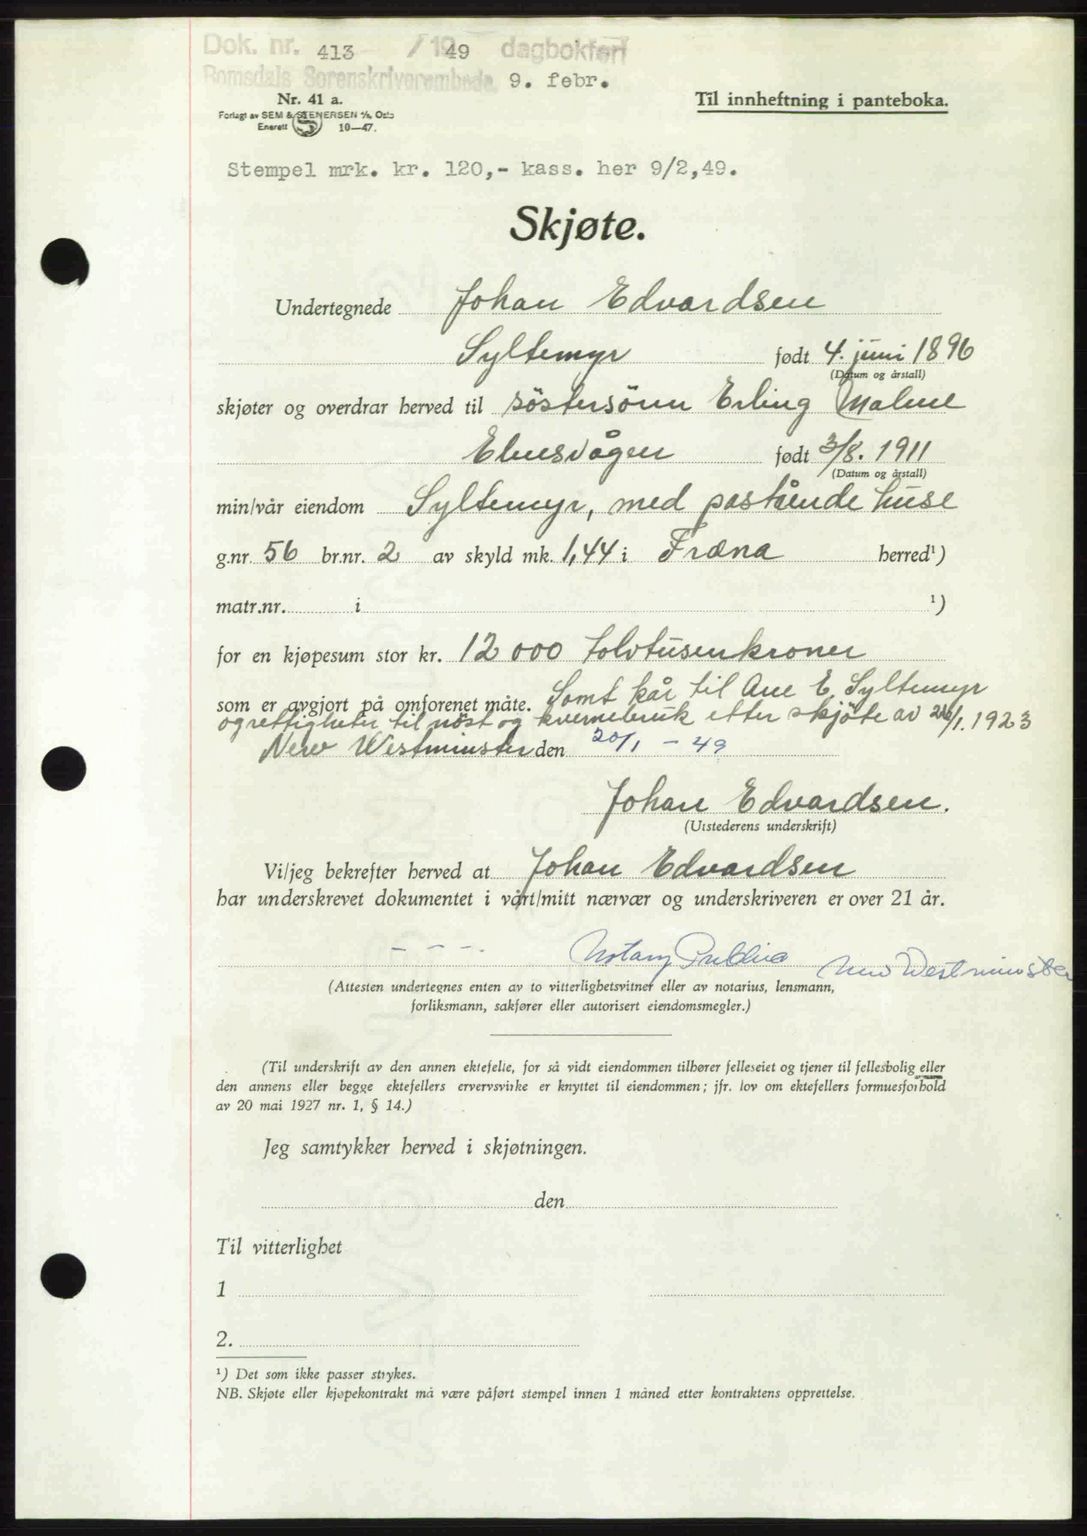 Dok. nr. 413 / 1949 dagbokført
Romsdals Sorenskriverembede 9. febr.
Nr. 41 a.
Forlagt av SEM & STENERSEN A/S, Oslo
Enerett 10—47.
Til innheftning i panteboka.
Stempel mrk. kr. 120,- kass. her 9/2,49.
Skjøte.
Undertegnede Johan Edvardsen
Syltemyr født 4. juni 1896
(Datum og årstall)
skjøter og overdrar herved til söstersönn Erling Malme
Elnesvågen født 3/8. 1911
(Datum og årstall)
min/vår eiendom Syltemyr, med påstående huse
g.nr. 56 br.nr. 2 av skyld mk. 1,44 i Fræna herred¹)
matr.nr. i ¹)
for en kjøpesum stor kr. 12 000 tolvtusenkroner
som er avgjort på omforenet måte. Samt kår til Ane E. Syltemyr
og rettigheter til nöst og kvernebruk etter skjöte av 26/1. 1923
New Westminster den 20/1 - 49
Johan Edvardsen.
(Utstederens underskrift)
Vi/jeg bekrefter herved at Johan Edvardsen
har underskrevet dokumentet i vårt/mitt nærvær og underskriveren er over 21 år.
- - - . Notary Public New Westminster
(Attesten undertegnes enten av to vitterlighetsvitner eller av notarius, lensmann,
forliksmann, sakfører eller autorisert eiendomsmegler.)
(Til underskrift av den annen ektefelle, for så vidt eiendommen tilhører felleseiet og tjener til fellesbolig eller
den annens eller begge ektefellers ervervsvirke er knyttet til eiendommen; jfr. lov om ektefellers formuesforhold
av 20 mai 1927 nr. 1, § 14.)
Jeg samtykker herved i skjøtningen.
den
Til vitterlighet
1
2.
¹) Det som ikke passer strykes.
NB. Skjøte eller kjøpekontrakt må være påført stempel innen 1 måned etter kontraktens opprettelse.